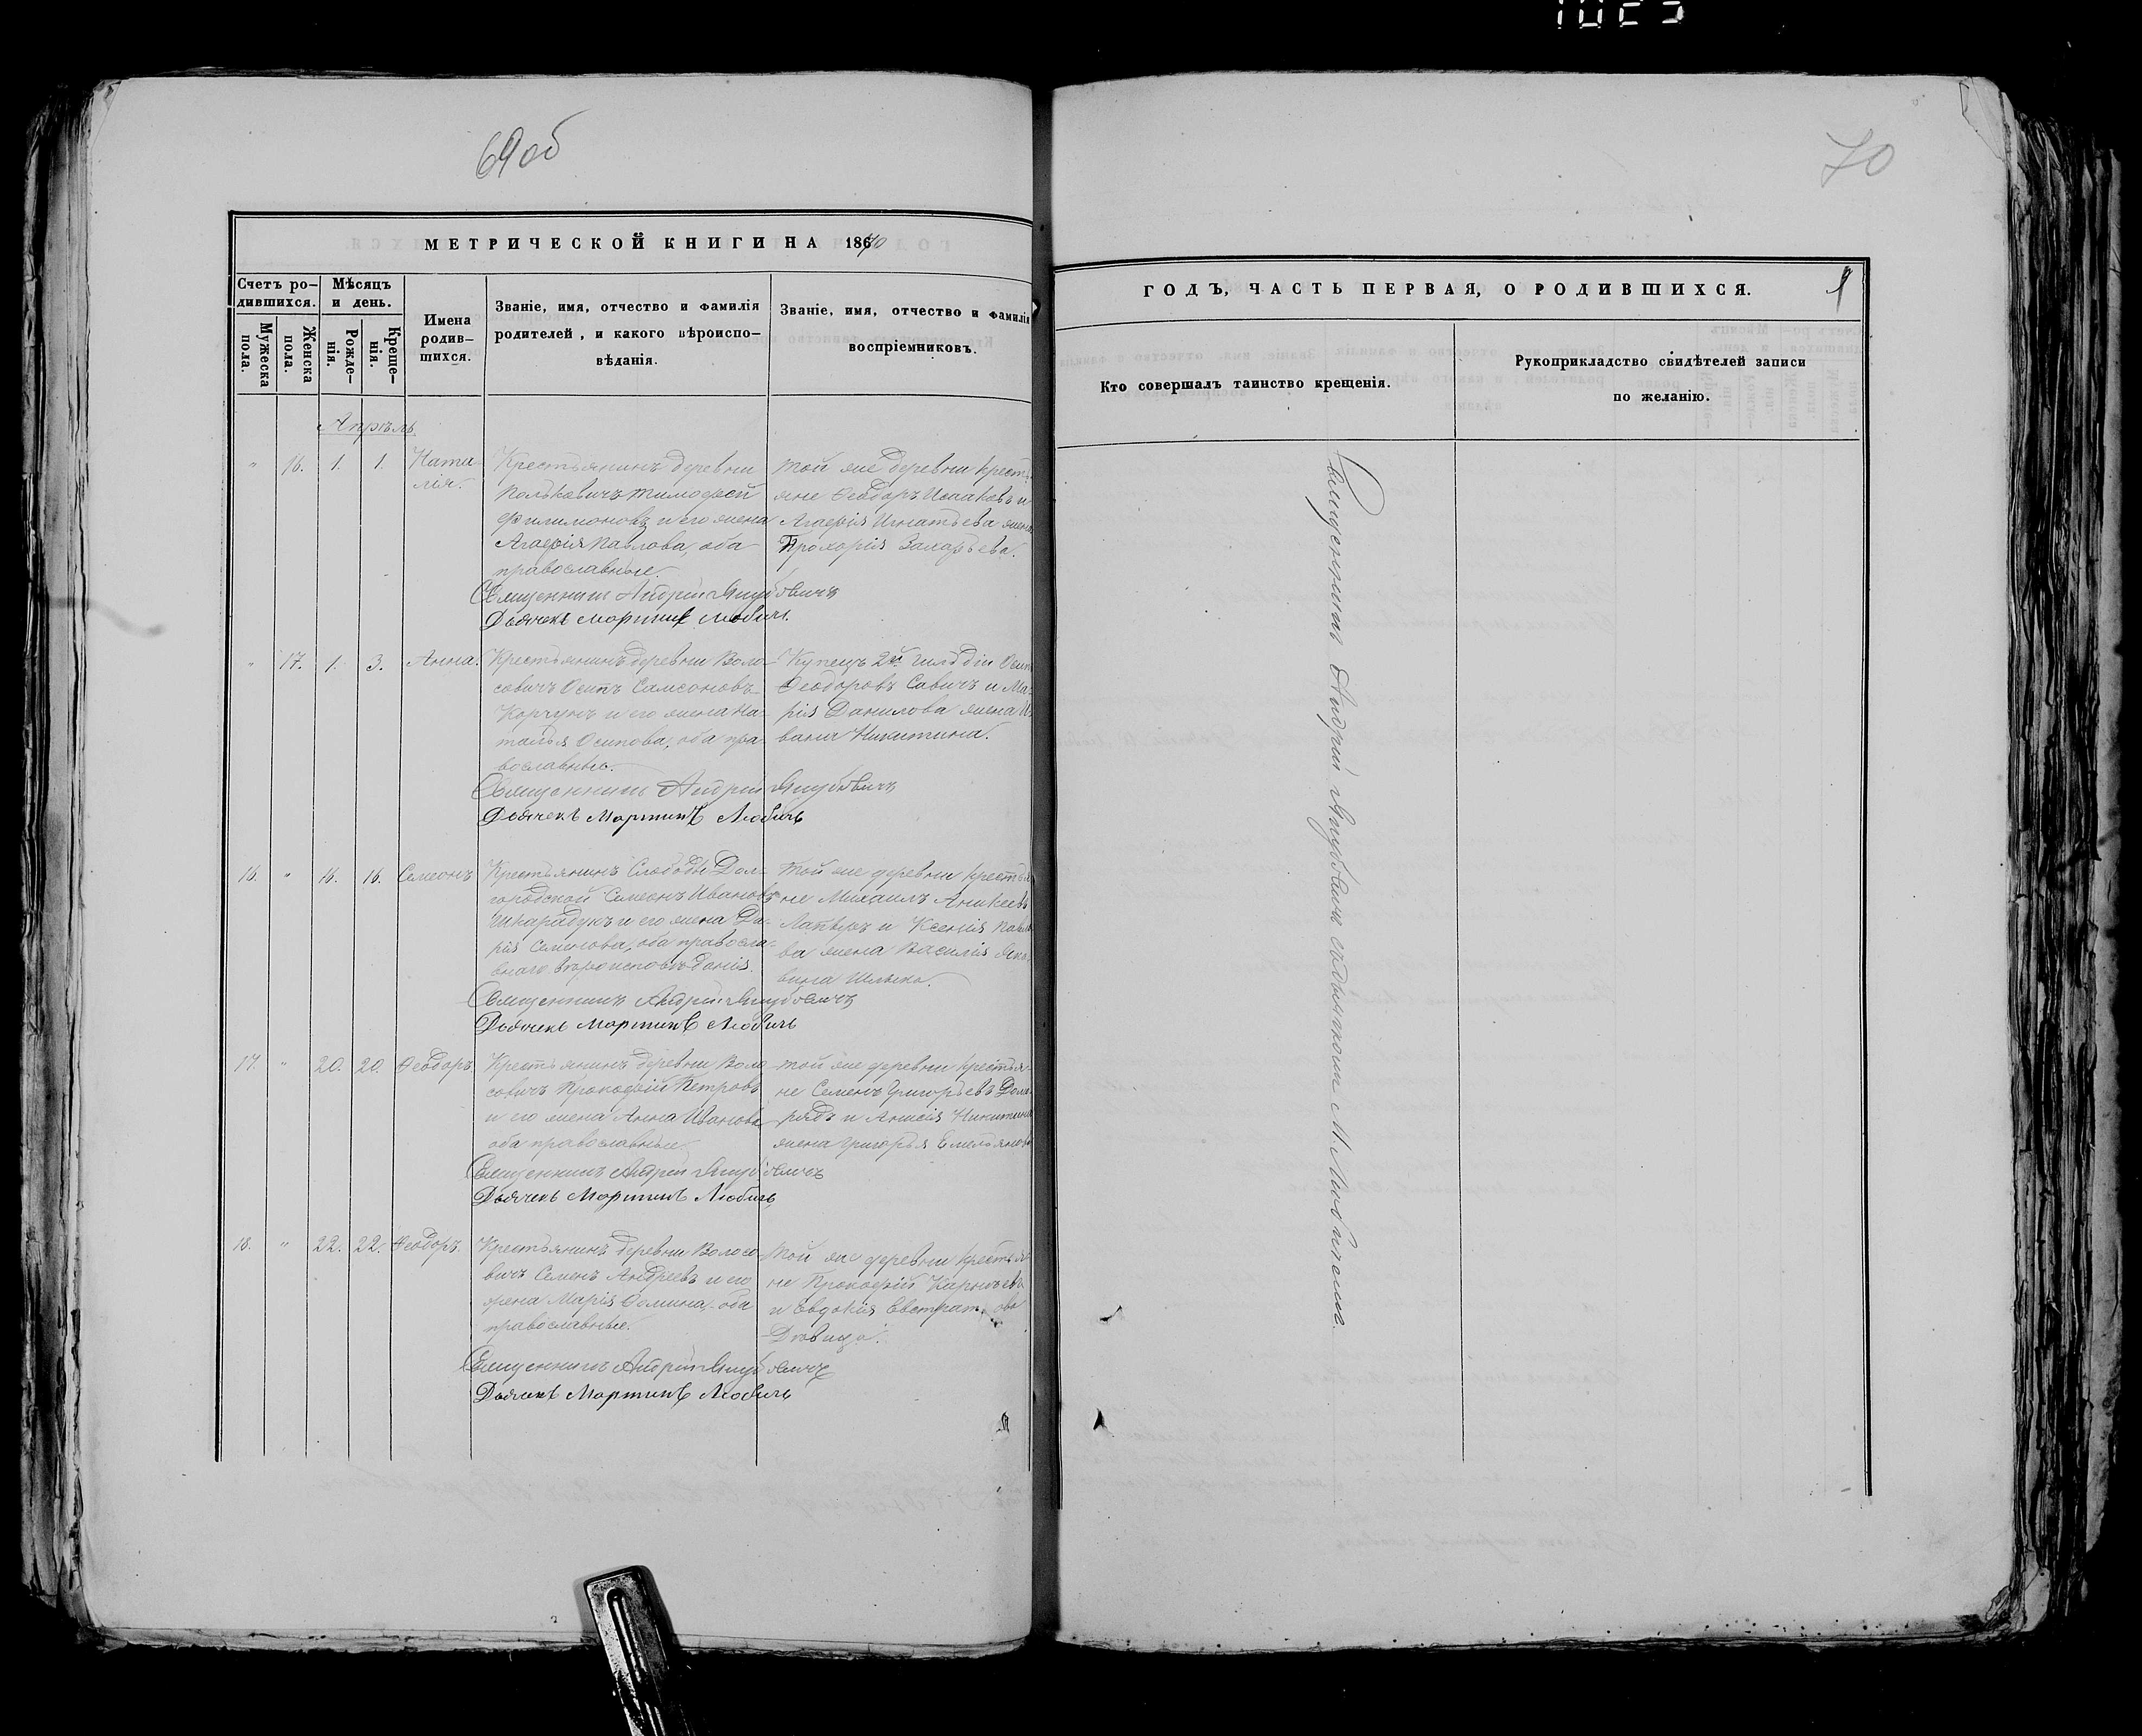 69об
МЕТРИЧЕСКОЙ КНИГИ НА 1870
Счетъ ро-
дившихся.
Мужеска
пола.
Женска
пола.
Мѣсяцъ
и день.
Рожде-
нія.
Креще-
нія.
Имена
родив-
шихся.
Званіе, имя, отчество и фамилія
родителей, и какого вѣроиспо-
вѣданія.
Званіе, имя, отчество и фамилія
воспріемниковъ.
Апрѣль
" 16. 1. 1. Ната-
лія.
Крестьянинъ деревни
Тимофей
Филимоновъ и его жена
Агафія Павлова, оба
православные.
Той же деревни крестья-
не Феодоръ Исааковъ и
Агафія Игнатьева жена
Прохорія Захарьева.
Священникъ Андрій Якубовичъ
Дьячекъ Мартинъ Любичъ
" 17. 1. 3. Анна.
Крестьянинъ деревни Воло-
совичъ Осипъ Самсоновъ
Корчунъ и его жена На-
талья Осипова, оба пра-
вославные.
Купецъ 2й гильдіи Осипъ
Феодоровъ Савичъ и Ма-
рія Данилова жена И-
вана Никитина.
Священникъ Андрій Якубовичъ
Дьячекъ Мартинъ Любичъ
16. " 16. 16. Семеонъ
Крестьянинъ Слободы Дол-
городской Семеонъ Ивановъ
и его жена Да-
рія Семенова, оба правосла-
внаго вѣроисповѣданія.
Той же деревни крестья-
не Михаилъ Аникеевъ
и Ксенія Павло-
ва жена Василія
Священникъ Андрій Якубовичъ
Дьячекъ Мартинъ Любичъ
17. " 20. 20. Феодоръ
Крестьянинъ деревни Воло-
совичъ Прокофій Петровъ
и его жена Анна Иванова
оба православные.
Той же деревни крестья-
не Семенъ Григорьевъ
и Анисія Никитина
жена Григорья Емельянова
Священникъ Андрій Якубовичъ
Дьячекъ Мартинъ Любичъ
18. " 22. 22. Феодоръ.
Крестьянинъ деревни Волосо-
вичъ Семенъ Андреевъ и его
жена Марія Фомина, оба
православные.
Той же деревни крестья-
не Прокофій Карнѣевъ
и Евдокія Евстратова
Дѣвица.
Священникъ Андрій Якубовичъ
Дьячекъ Мартинъ Любичъ
70
ГОДЪ, ЧАСТЬ ПЕРВАЯ, О РОДИВШИХСЯ.
Кто совершалъ таинство крещенія.
Рукоприкладство свидѣтелей записи
по желанію.
Священникъ Андрій Якубовичъ съ дьячкомъ М. Любичемъ.